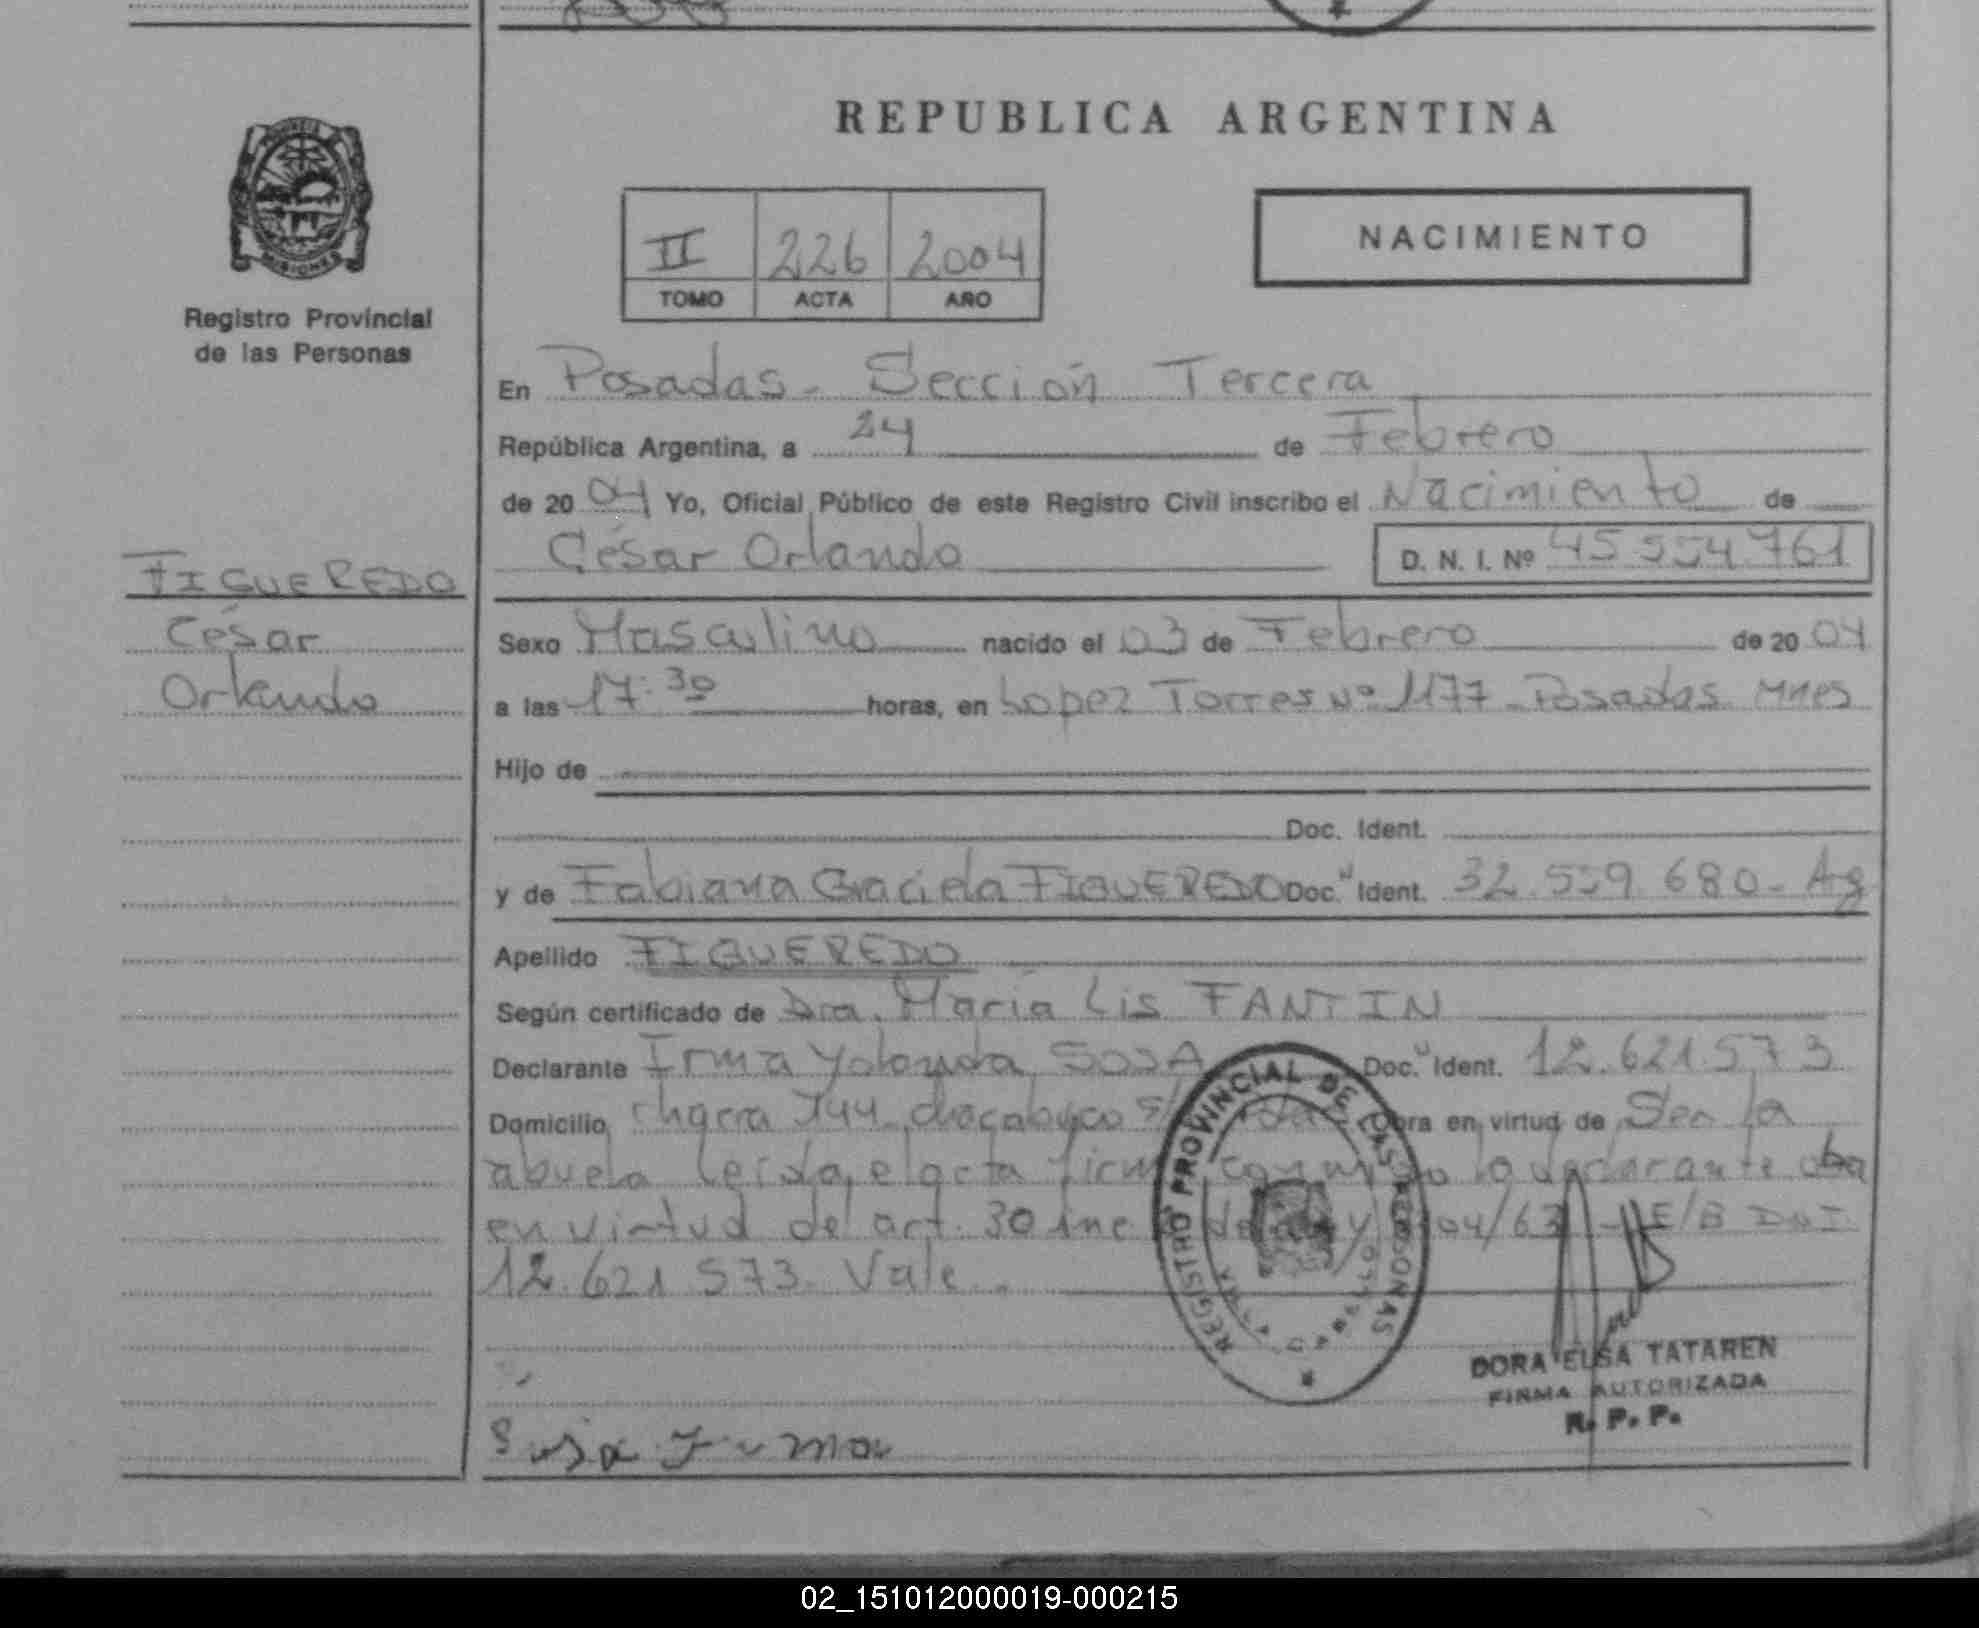 REPUBLICA ARGENTINA
PROVINCIA
MISIONES
Registro Provincial
de las Personas
II 226 2004
TOMO ACTA AÑO
NACIMIENTO
En Posadas - Sección Tercera
República Argentina, a 24 de Febrero
de 20 04 Yo, Oficial Público de este Registro Civil inscribo el Nacimiento de
César Orlando D. N. I. Nº 45 554 761
FIGUEREDO
César
Orlando
Sexo Masculino nacido el 03 de Febrero de 20 04
a las 17:30 horas, en Lopez Torres Nº 1177 - Posadas Mnes
Hijo de
Doc. Ident.
y de Fabiana Graciela FIGUEREDO Doc. Ident. 32.559.680 - Ag
Apellido FIGUEREDO
Según certificado de Dra. María Lis FANTIN
Declarante Irma Yolanda SOSA Doc. Ident. 12.621.573
Domicilio chacra 744 - chacabuco Obra en virtud de Ser la
abuela Leída el acta la declarante
en virtud del art. 30 inc 04/63 E/B DNI
12.621.573. Vale.
REGISTRO PROVINCIAL DE LAS PERSONAS
DORA ELSA TATAREN
FIRMA AUTORIZADA
R. P. P.
Sosa Irma
02_151012000019-000215